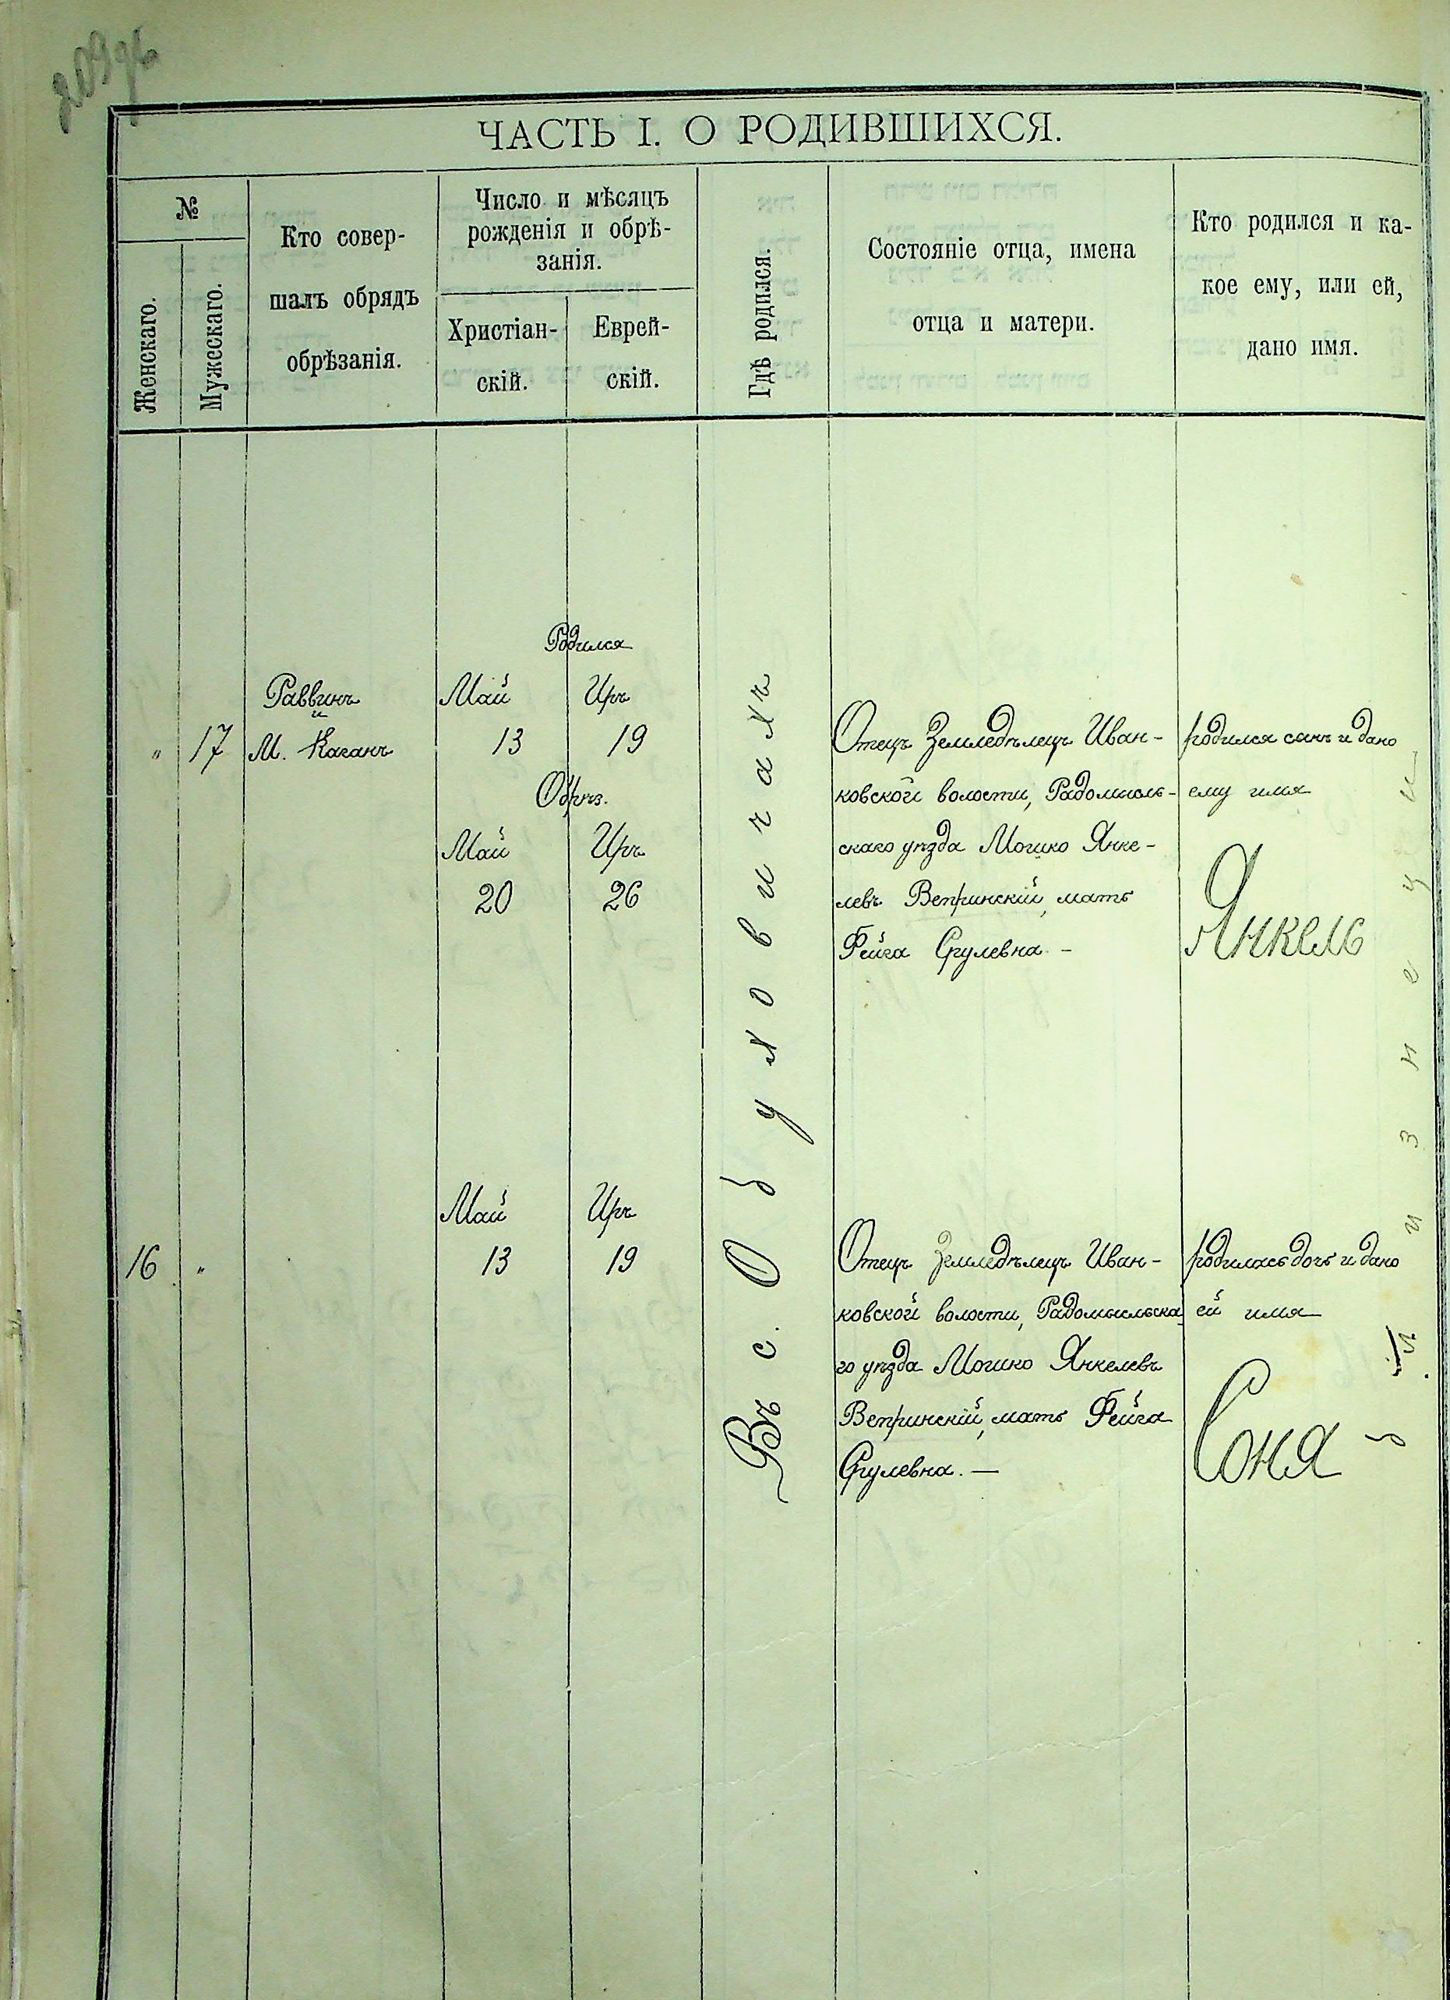 ЧАСТЬ I. О РОДИВШИХСЯ.
№
Женскаго.
Мужескаго.
Кто совер-
шалъ обрядъ
обрѣзанія.
Число и мѣсяцъ
рожденія и обрѣ-
занія.
Христіан-
скій.
Еврей-
скій.
Гдѣ родился.
Состояніе отца, имена
отца и матери.
Кто родился и ка-
кое ему, или ей,
дано имя.
Родился
Раввинъ
и
Май
Иръ
„ 17 М. Каганъ 13 19
Обрѣз.
Май
Иръ
20
26
Въ с. Обуховичахъ
Отецъ Земледѣлецъ Иван-
ковской волости, Радомысль-
скаго уѣзда Мошко Янке-
левъ Ветринскій, мать
Фейга Срулевна. –
родился сынъ и дано
ему имя
Янкель
Май
Иръ
16 „ 13 19
Отецъ Земледѣлецъ Иван-
ковской волости, Радомысльска
го уѣзда Мошко Янкелевъ
Ветринскій, мать Фейга
Срулевна. —
родилась дочь и дано
ей имя
Соня
близнецы